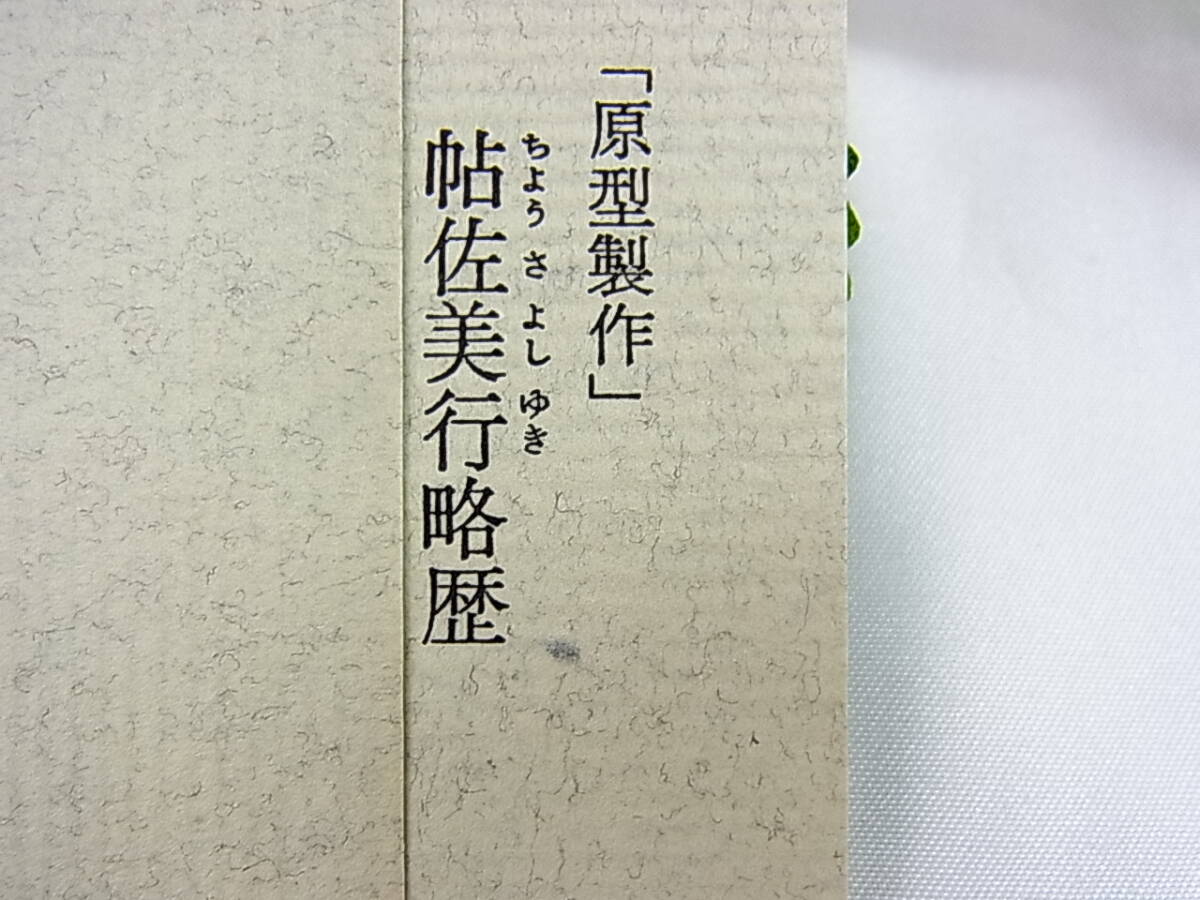 「原型製作」
ちょうさよしゆき
帖佐美行略歴